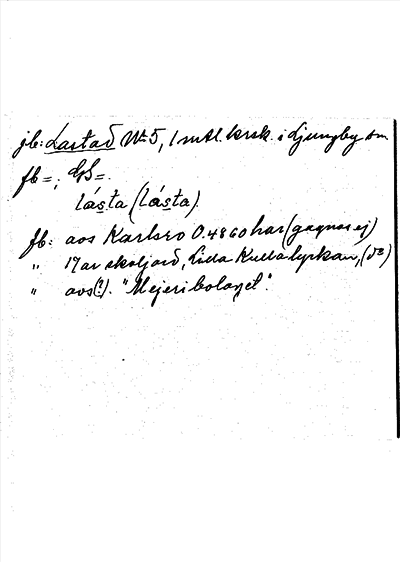 jb: Lastad No 5, 1 mtl. krsk. i Ljungby sn.
fb =; GS =.
lásta (lásta).
fb: aos Karlsro 0.4860 har (gagnas ej)
" 17 ar skoljord, Lilla Kulla lyckan,
" aos (?). "Mejeribolaget".